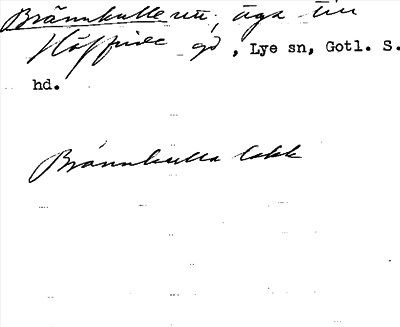 Brännkulle rut, äga till
Häffride gd, Lye sn, Gotl. S.
hd.
Brännkulla lokk